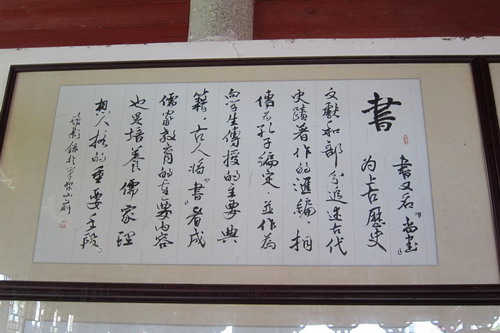 書
書又名『尚書』
為上古歷史
文獻和部分追述古代
史蹟著作的滙編,相
傳為孔子編定,並作為
向學生傳授的主要典
籍。古人將『書』看成
儒家教育的主要內容
也是培養儒家理
想人格的重要手段